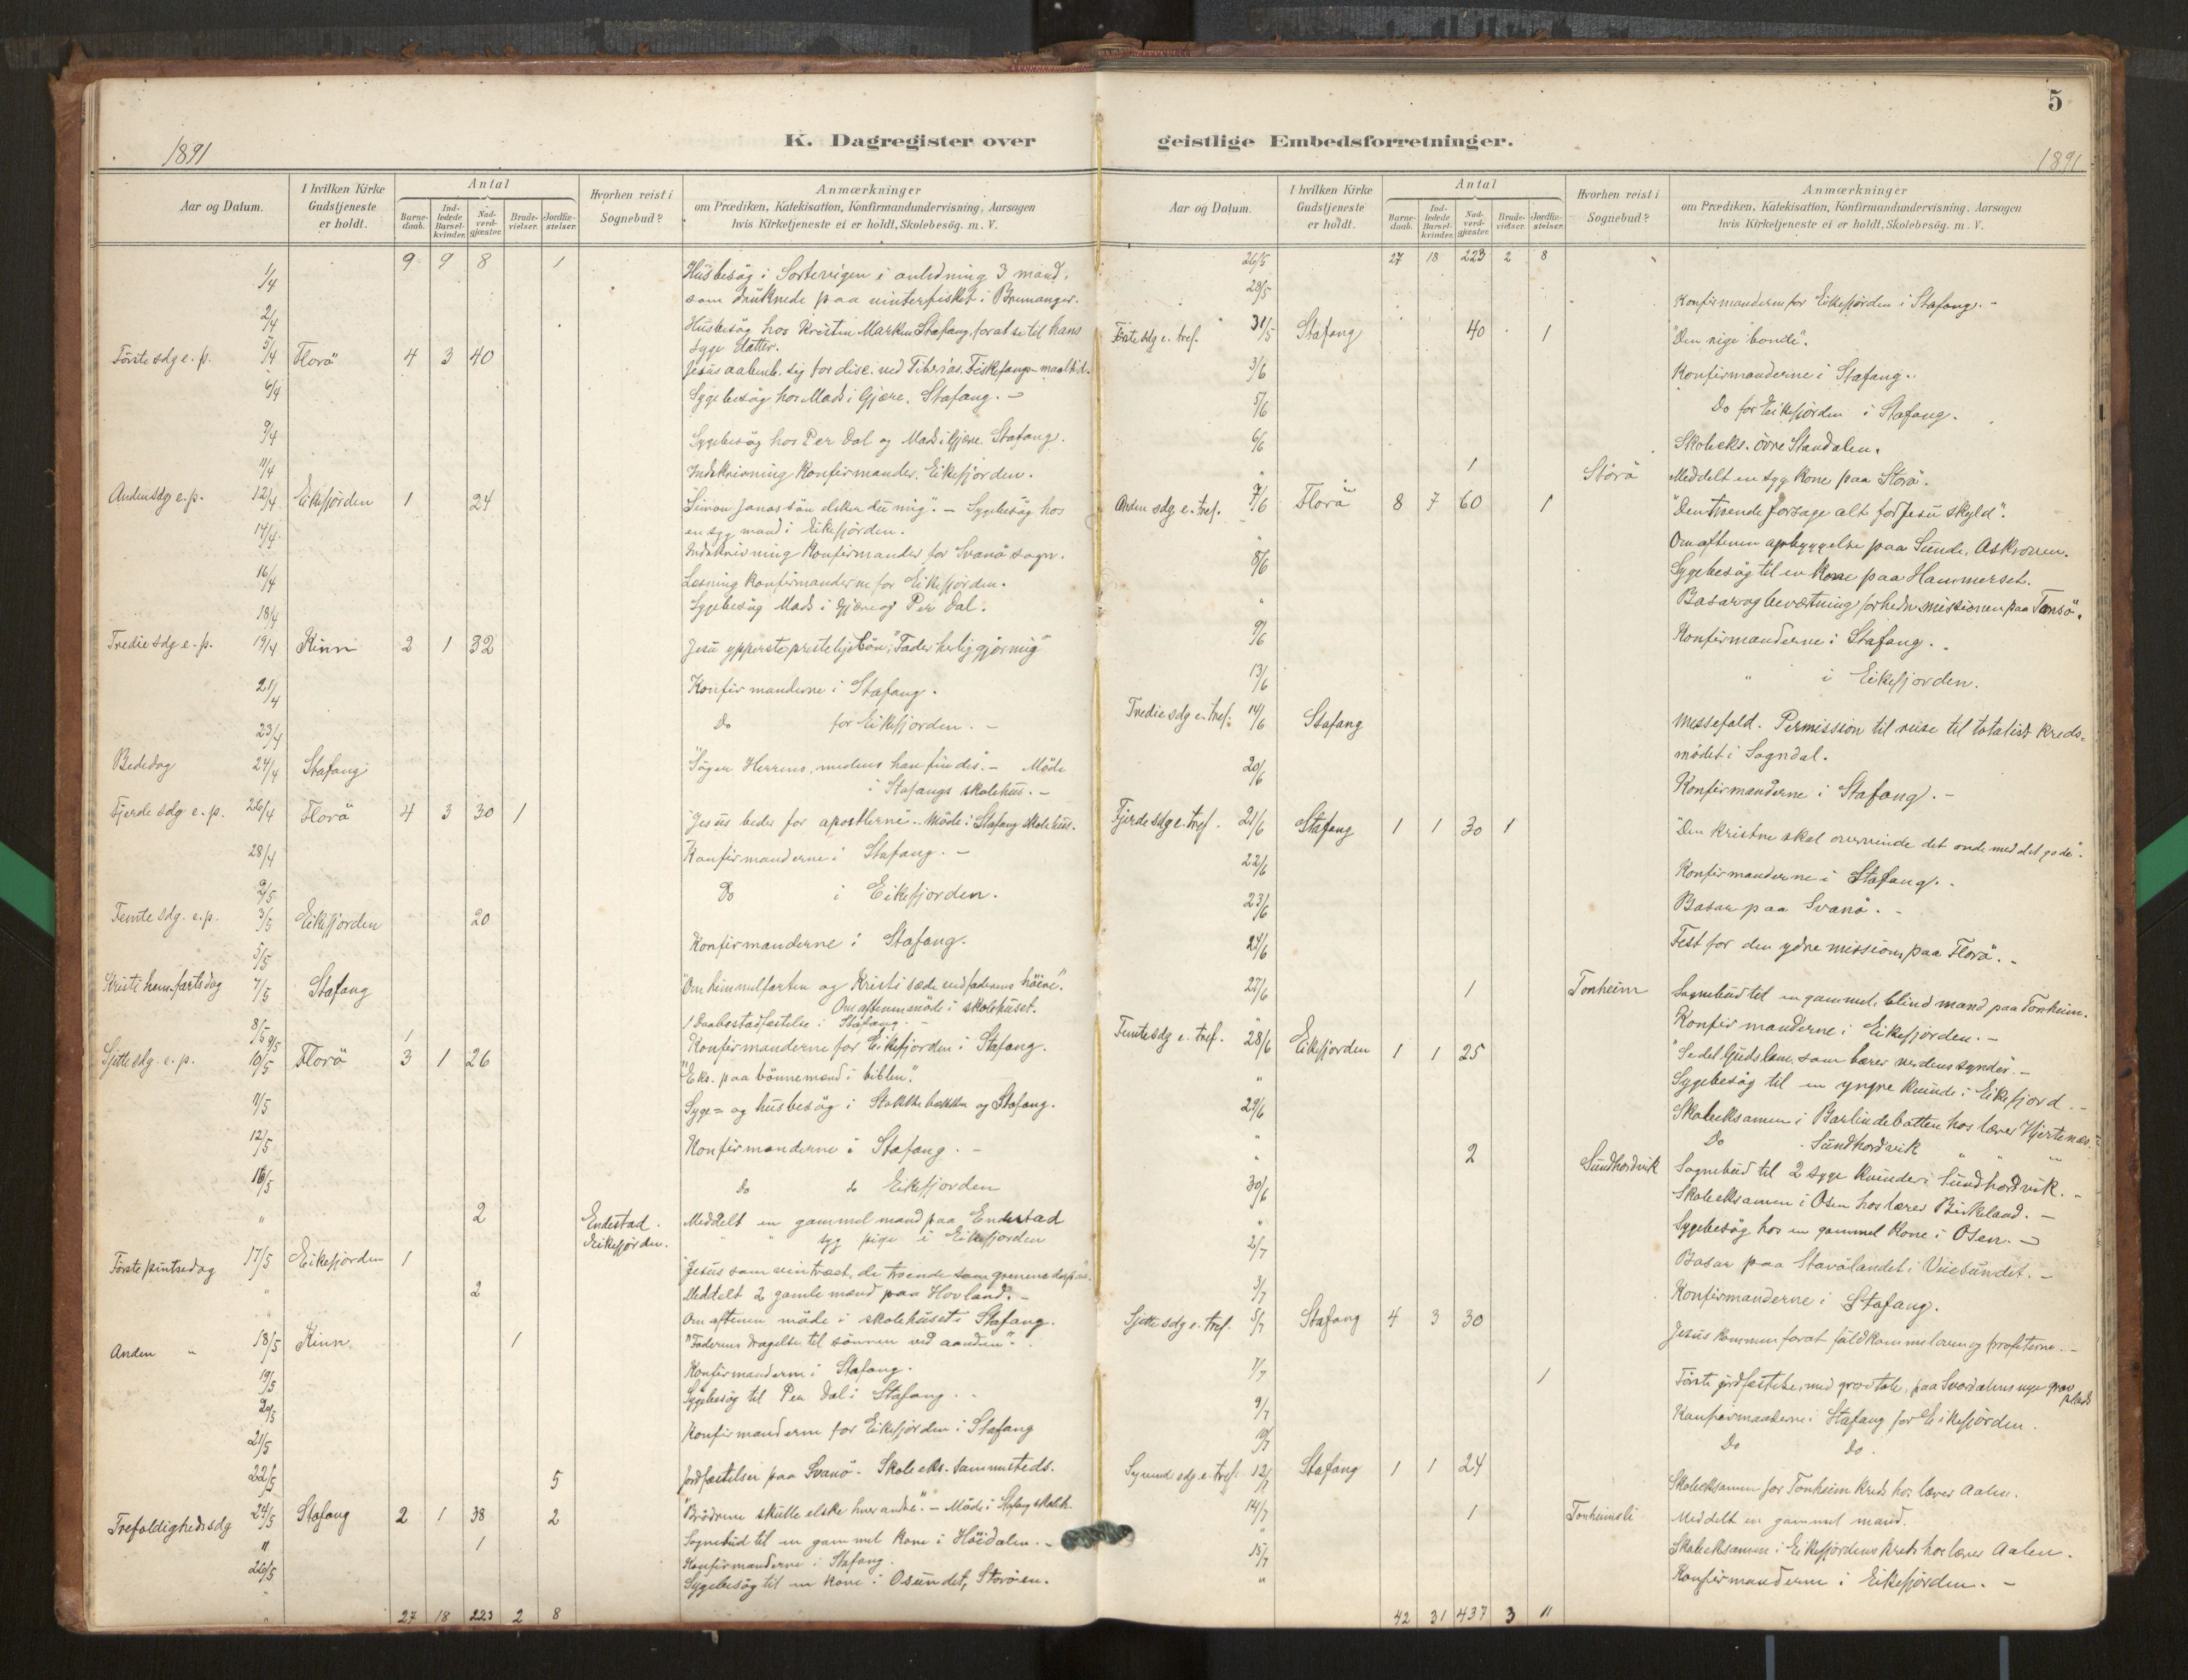 1891
K. Dagregister over
Aar og Datum.
I hvilken Kirke Gudstjeneste er holdt.
Antal
Barne-daab.
Ind-ledede Barsel-kvinder.
Nad-verd-gjæster.
Brude-vielser.
Jordfæ-stelser.
Hvorhen reist i Sognebud?
Anmærkninger
om Prædiken, Katekisation, Konfirmandundervisning, Aarsagen
hvis Kirketjeneste ei er holdt, Skolebesög. m. V.
9 9 8 1
1/4 Husbesög i Sortevigen i anledning 3 mænd,
som druknede paa vinterfisket i Bremanger.
2/4 Husbesög hos Kristen Marken Stafang, forat se til hans
syge datter.
Förste sdg e. p. 5/4 Florö 4 3 40 Jesus aabenb. sig for disc. ved Tiberias. Fiskefangs-maaltid.
6/4 Sygebesög hos Mads i Gjære, Stafang. -
9/4 Sygebesög hos Per Dal og Mads i Gjære Stafang.
11/4 Indskrivning Konfirmander. Eikefjorden.
Anden sdg e. p. 12/4 Eikefjorden 1 24 "Simon Jonas sön elsker du mig". - Sygebesög hos
en syg mand i Eikefjorden.
14/4 Indskrivning Konfirmander for Svanö sogn.
16/4 Læsning konfirmanderne for Eikefjorden.
18/4 Sygebesög Mads i Gjære og Per Dal.
Tredie sdg e. p. 19/4 Kinn 2 1 32 Jesu ypperstepresteligebön: "Fader herliggjör mig"
21/4 Konfirmanderne i Stafang.
23/4 Do for Eikefjorden. -
Bededag 24/4 Stafang "Söger Herren, medens han findes". - Möde
i Stafangs skolehus. -
Fjerde sdg e. p. 26/4 Florö 4 3 30 1 "Jesus beder for apostlerne". - Möde i Stafang skolehus.
28/4 Konfirmanderne i Stafang. -
2/5 Do i Eikefjorden.
Femte sdg. e. p. 3/5 Eikefjorden 20
5/5 Konfirmanderne i Stafang.
Kristi hemfartsdag 7/5 Stafang "Om himmelfarten og Kristi sæde ved faderens höire".
Om aftenen möde i skolehuset.
8/5 1 1 Daabsstadfæstelse i Stafang. -
9/5 Konfirmanderne for Eikefjorden i Stafang.
Sjette sdg. e. p. 10/5 Florö 3 1 26 "Eks. paa bönnemænd i biblen".
11/5 Syge- og husbesög i Stokkebækken og Stafang.
12/5 Konfirmanderne i Stafang. -
16/5 do do Eikefjorden
" 2 Endestad. Meddelt en gammel mand paa Endestad
Eikefjorden. " " syg pige i Eikefjorden
Förste pintsedag 17/5 Eikefjorden 1 "Jesus som vintræet, de troende som grenene derpaa".
" 2 Meddelt 2 gamle mænd paa Hovland. -
" Om aftenen möde i skolehuset i Stafang.
Anden " 18/5 Kinn 1 "Faderens dragelse til sönnen ved aanden". -
19/5 Konfirmanderne i Stafang.
20/5 Sygebesög til Per Dal i Stafang. -
21/5 Konfirmanderne for Eikefjorden i Stafang
22/5 5 Jordfæstelser paa Svanö. Skoleeks. sammesteds.
Trefoldigheds sdg 24/5 Stafang 2 1 38 2 "Brödrene skulle elske hverandre". - Möde i Stafang skoleh.
" 1 Sognebud til en gammel kone i Höidalen. -
26/5 Konfirmanderne i Stafang.
" Sygebesög til en kone i Osundet, Storöen.
" 27 18 223 2 8
5
1891
geistlige Embedsforretninger.
Aar og Datum.
I hvilken Kirke Gudstjeneste er holdt.
Antal
Barne-daab.
Ind-ledede Barsel-kvinder.
Nad-verd-gjæster.
Brude-vielser.
Jordfæ-stelser.
Hvorhen reist i Sognebud?
Anmærkninger
om Prædiken, Katekisation, Konfirmandundervisning, Aarsagen
hvis Kirketjeneste ei er holdt, Skolebesög. m. V.
26/5 27 18 223 2 8
28/5 Konfirmanderne for Eikefjorden i Stafang. -
Förste sdg e. tref. 31/5 Stafang 40 1 "Den rige bonde".
3/6 Konfirmanderne i Stafang.
5/6 Do for Eikefjorden i Stafang.
6/6 Skoleeks. övre Standalen.
" 1 Storö Meddelt en syg kone paa Storö.
Anden sdg. e. tref. 7/6 Florö 8 7 60 1 "Den troende forsage alt for Jesu skyld".
" Om aftenen opbyggelse paa Sunde, Askroven.
8/6 Sygebesög til en kone paa Hammerset.
" Basar og bevertning for hednemissionen paa Tansö.
9/6 Konfirmanderne i Stafang.
13/6 " i Eikefjorden.
Tredie sdg e. tref. 14/6 Stafang Messefald. Permission til reise til totalist kreds-
mödet i Sogndal.
20/6 Konfirmanderne i Stafang. -
Fjerde sdg e. tref. 21/6 Stafang 1 1 30 1 "Den kristne skal overvinde det onde med det gode".
22/6 Konfirmanderne i Stafang.
23/6 Basar paa Svanö. -
24/6 Fest for den ydre mission, paa Florö. -
27/6 1 Tonheim Sognebud til en gammel, blind mand paa Tonheim.
" Konfirmanderne i Eikefjorden. -
Femte sdg e. tref. 28/6 Eikefjorden 1 1 25 "Se det Guds lam, som bærer verdens synder". -
" Sygebesög til en yngre kvinde i Eikefjord. -
29/6 Skoleeksamen i Barlindebotten hos lærer Hjertenæs.
" Do Sundhordvik " " "
" 2 Sundhordvik Sognebud til 2 syge kvinder i Sundhordvik. -
30/6 Skoleeksamen i Osen hos lærer Birkeland. -
" Sygebesög hos en gammel kone i Osen. -
2/7 Basar paa Stavölandet i Viiesundet. -
3/7 Konfirmanderne i Stafang.
Sjette sdg e. tref. 5/7 Stafang 4 3 30 Jesus kommen forat fuldkomme loven og profeterne. -
7/7 1 Förste jordfæstelse, med gravtale, paa Svardalens nye grav
plads
9/7 Konfirmanderne i Stafang for Eikefjorden.
10/7 Do Do.
Syvende sdg e. tref. 12/7 Stafang 1 1 24
14/7 Skoleeksamen for Tonheim kreds hos lærer Aalen.
" 1 Tonheimsli Meddelt en gammel mand.
15/7 Skoleeksamen i Eikefjordens kreds hos lærer Aalen.
" Konfirmanderne i Eikefjorden. -
42 31 437 3 11